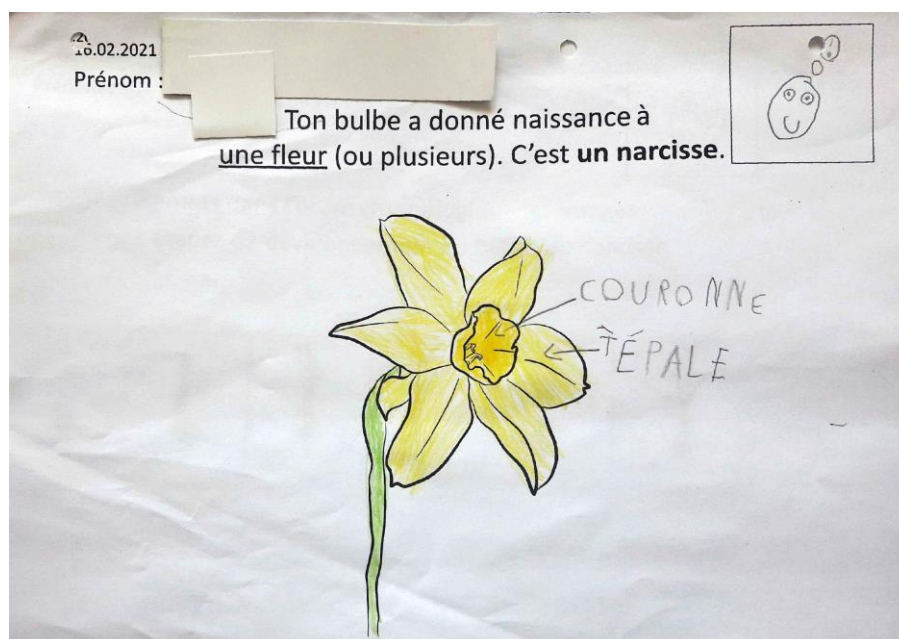 16.02.2021
Prénom :
Ton bulbe a donné naissance à
une fleur (ou plusieurs). C'est un narcisse.
COURONNE
TÉPALE